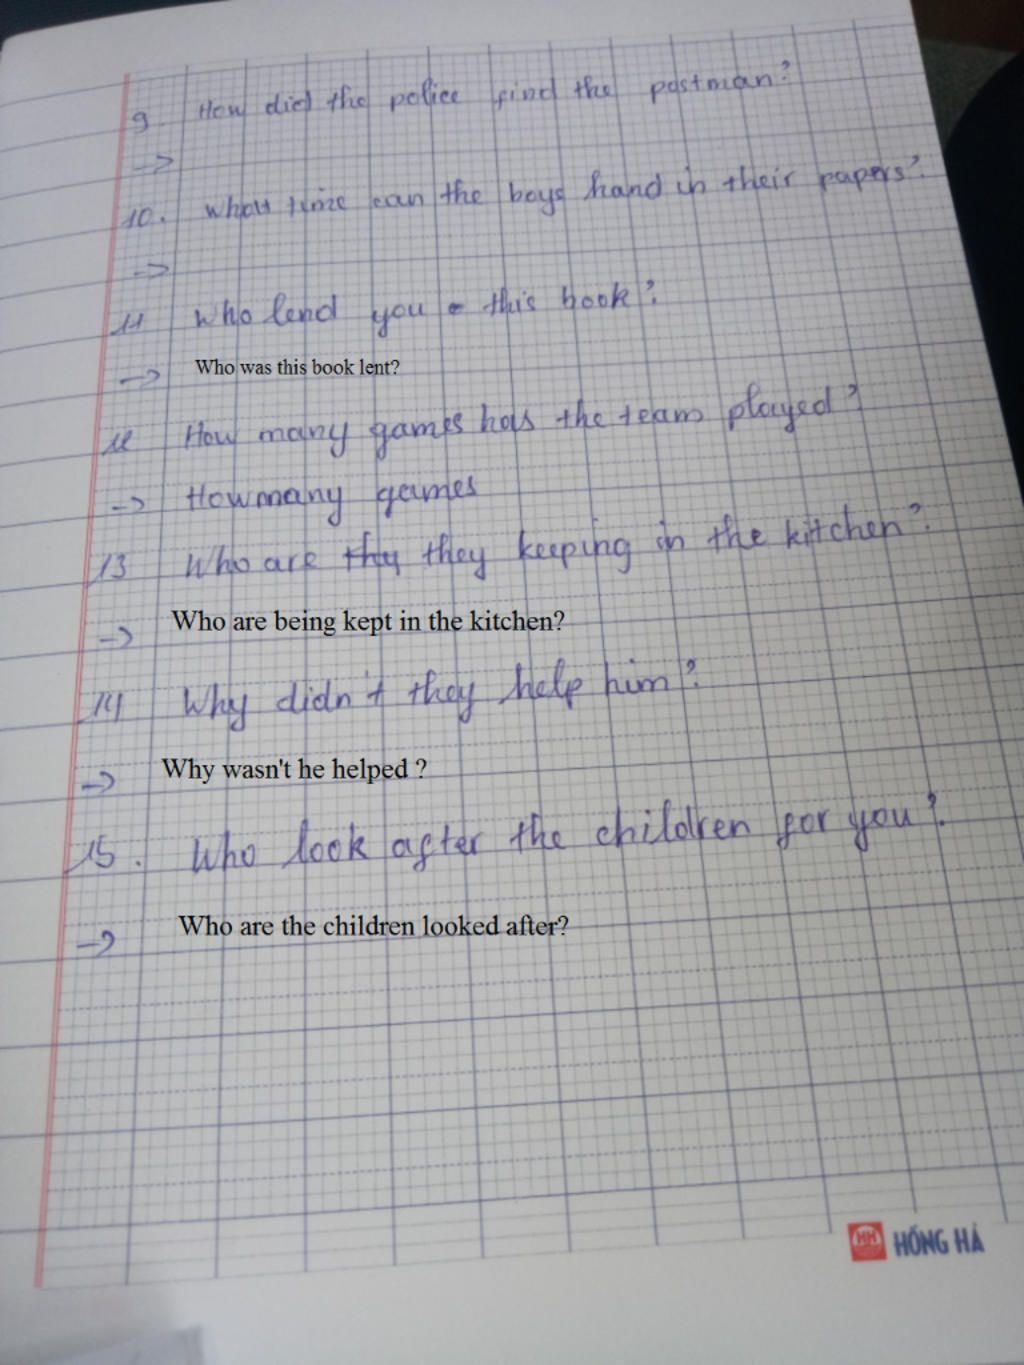 9. How did the police find the postman?
->
10. What time can the boys hand in their papers?
->
11 Who lend you this book?
-> Who was this book lent?
12 How many games has the team played?
-> How many games
13 Who are they they keeping in the kitchen?
-> Who are being kept in the kitchen?
14 Why didn't they help him?
-> Why wasn't he helped ?
15. Who look after the children for you?
-> Who are the children looked after?
HH HỒNG HÀ